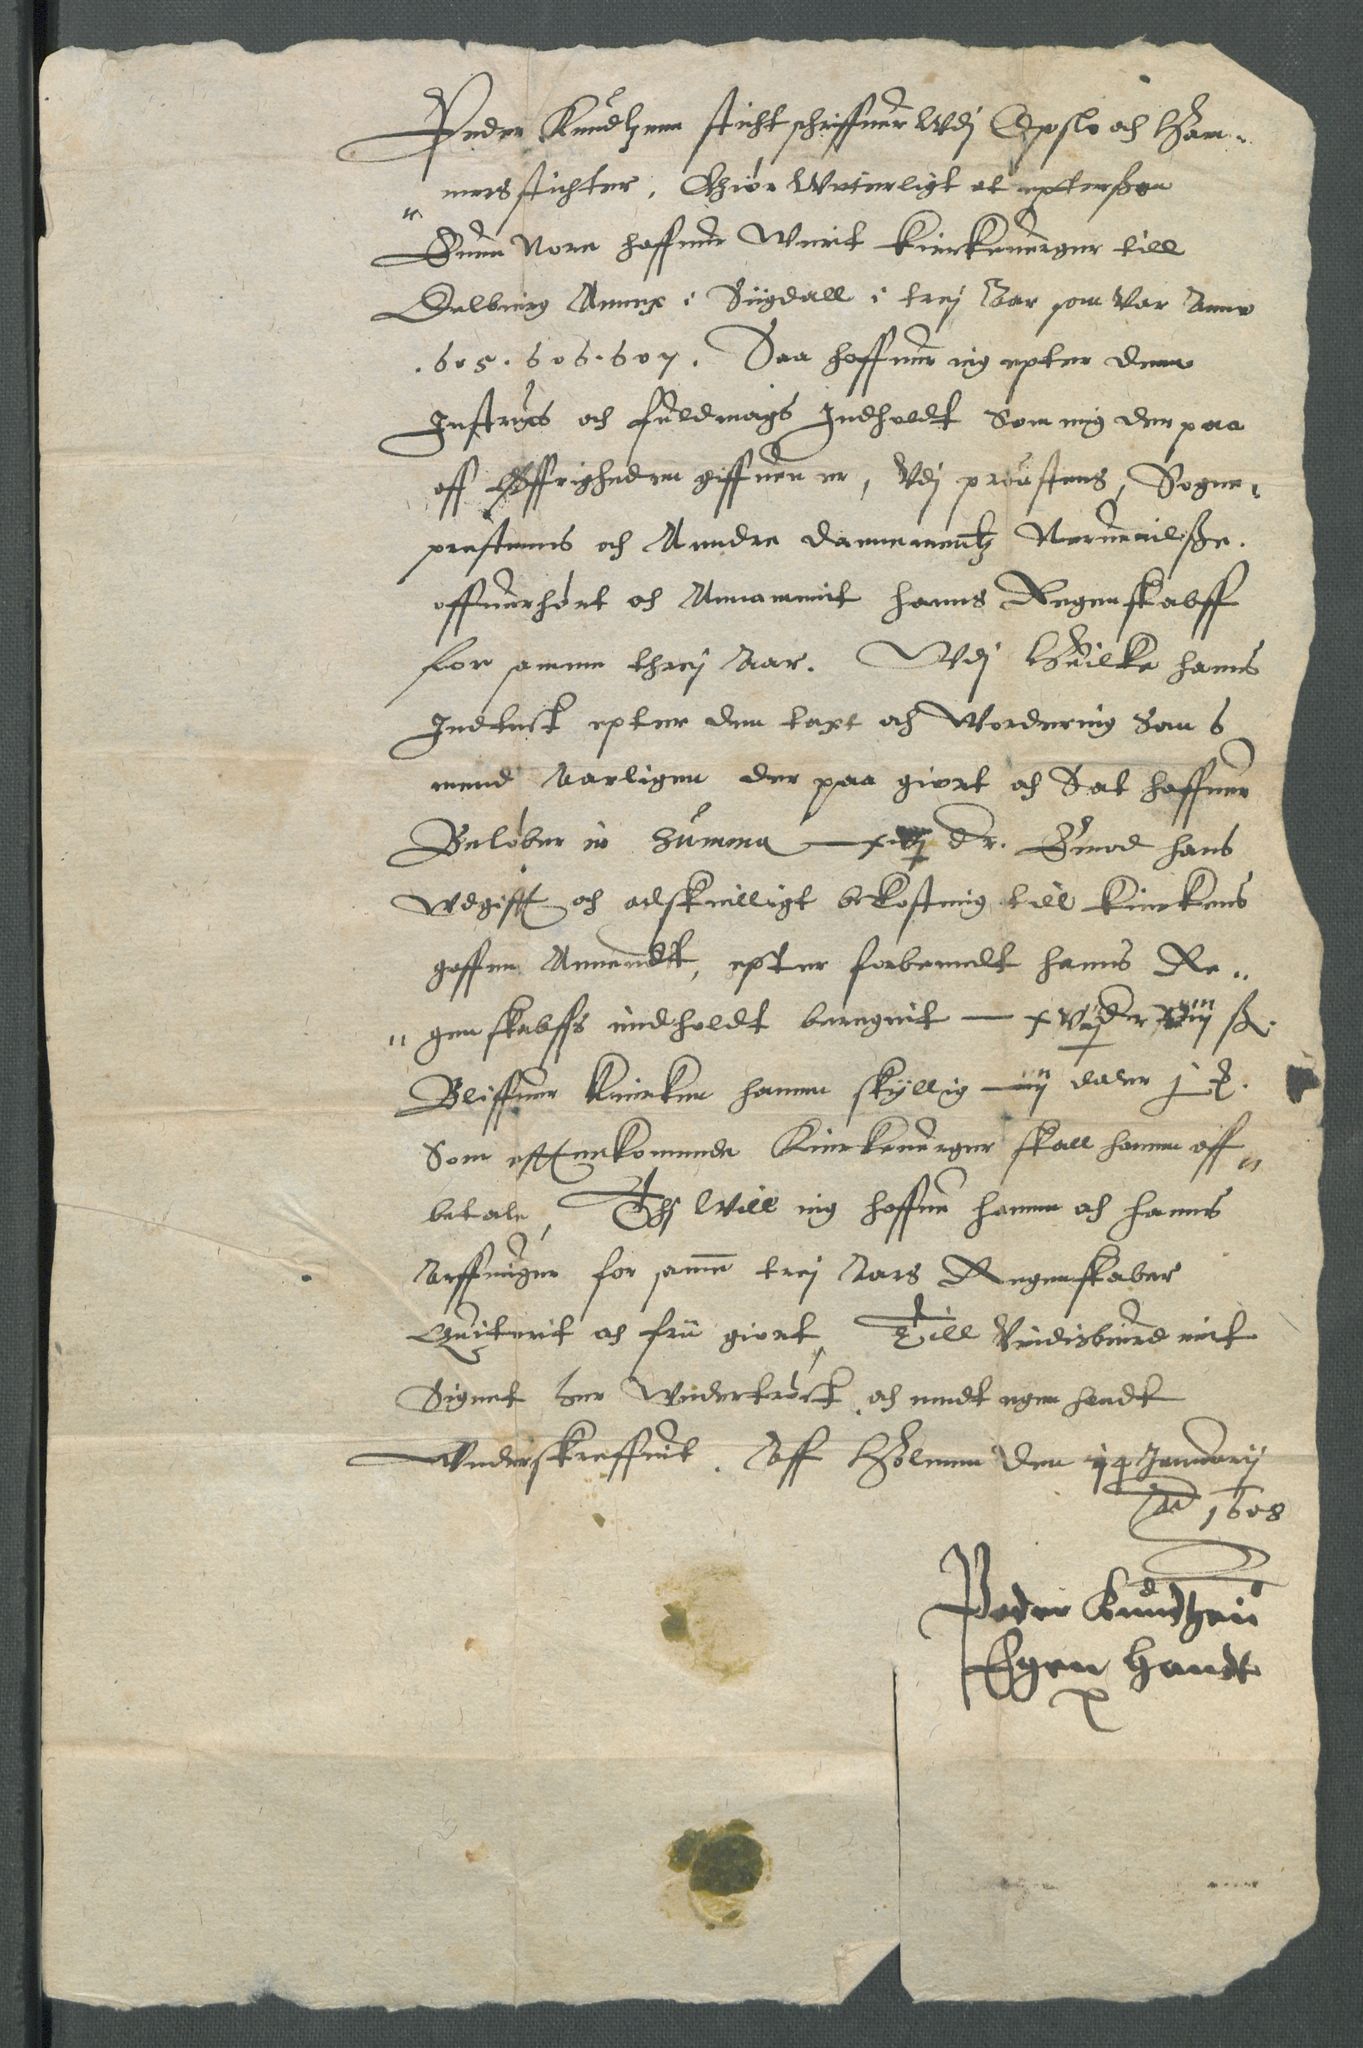 Peder Knudtzenn stichtschriffuer Wdj Opslo och Ham„
„mers stichter, Giör Witerligt at epterßom
Suen Nore haffuer Werit kirckeuerger till
Annex i Sigdall i trej Aar som Var Anno
.605.606.607. Daa haffuer ieg epter denn
Instrux och fuldmags Indholdt Som mig derpaa
aff Øffrigheden giffuen er, Vdj proustens, Sogne„
prestenns och Anndre dannementz Neruerilße.
offuerhört och Annammit hanns Regenskabff
for samme threj Aar. Wdj Huilke hanns
Indtect epter den taxt och Wordering Som 6
mend Aarligen der paa giort och Sat haffuer
Belöber in Summa dr. Emod hans
Wdgifft och adskilligt bekostning till kirckens
gaffnn Anuendt, epter forberördt hanns Re„
„genskabffs indholdt beregnit daler ß.
Bliffuer kircken hannom skyllig iij daler j
Som efftterkommende Kirckeuerger skall hannem aff„
betale, Thj Will ieg haffue hannom och hanns
Arffuinger for samme trej Aars Regenskaber
Quiterit och frij giort, Till Vidisbiurd mit
Signet her Wnder tröckt, och medt egen handt
Wnderskreffuit. Aff Holmen den 14 Januarij
Ao 1608
Peder Knudtzen
Egen Handt